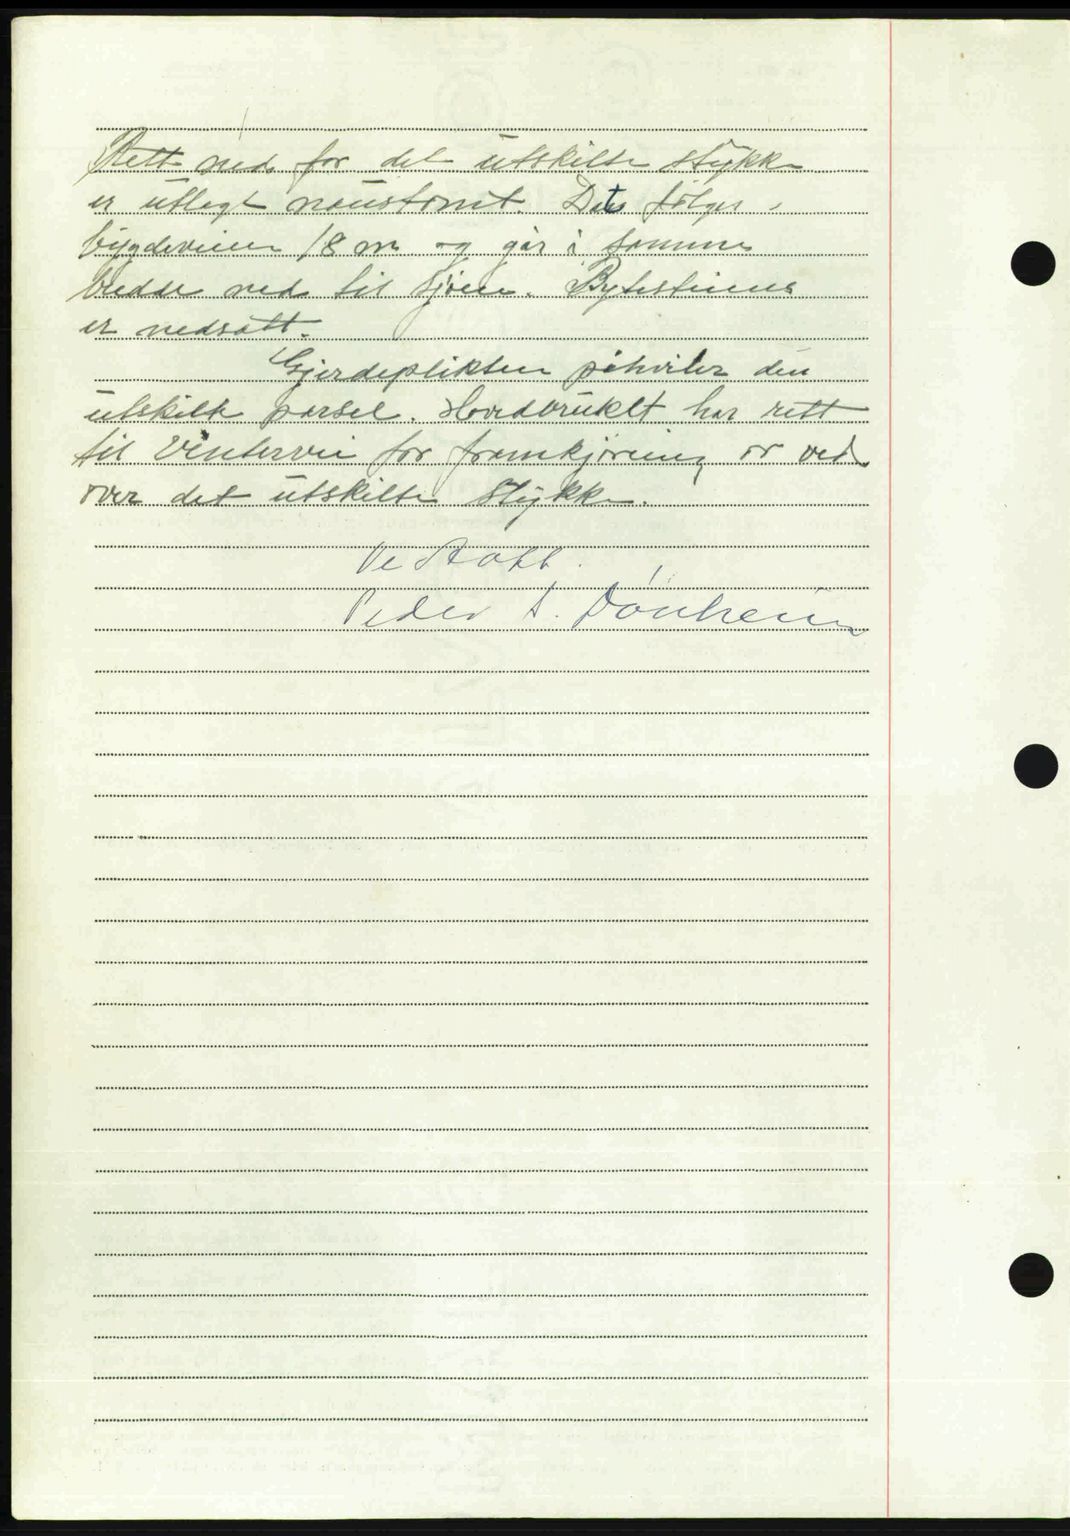 Rett ned for det utskilte stykke
er utlagt nausttomt. Det følger
bygdeveien 18 m og går i samme
bredde ned til sjøen. Bytesteine
er nedsatt.
Gjerdeplikten påhviler den
utskilte parsel. Hovedbruket har rett
til vintervei for framkjøring av ved
over det utskilte stykke.
Peder A. Dönheim